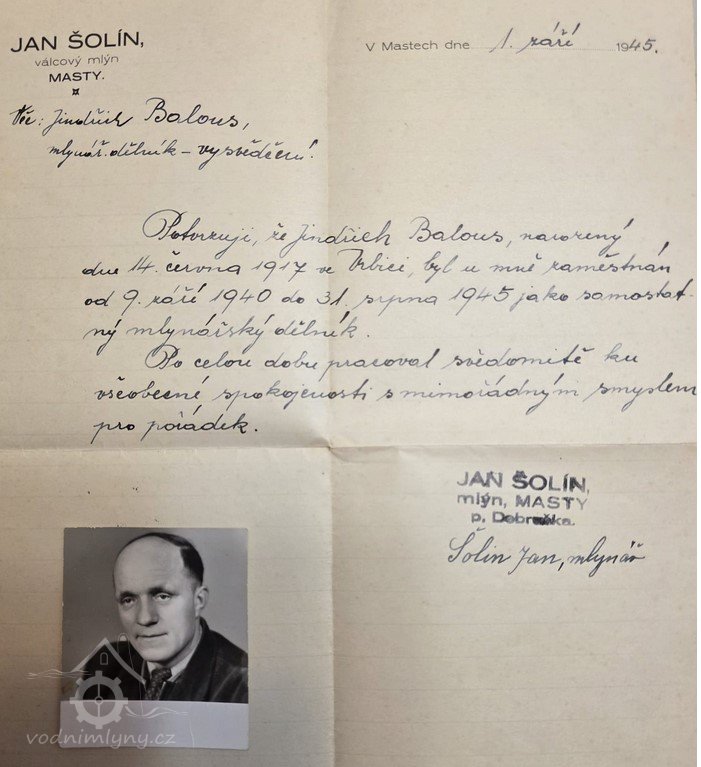 JAN ŠOLÍN,
válcový mlýn
MASTY.
V Mastech dne 1. září 1945.
Věc: Jindřich Balous,
mlynář. dělník – vysvědčení.
Potvrzuji, že Jindřich Balous, narozený
dne 14. června 1917 ve Vrbici, byl u mně zaměstnán
od 9. září 1940 do 31. srpna 1945 jako samostat-
ný mlynářský dělník.
Po celou dobu pracoval svědomitě ku
všeobecné spokojenosti s mimořádným smyslem
pro pořádek.
JAN ŠOLÍN,
mlýn, MASTY
p. Dobruška.
Šolín Jan, mlynář
vodnimlyny.cz